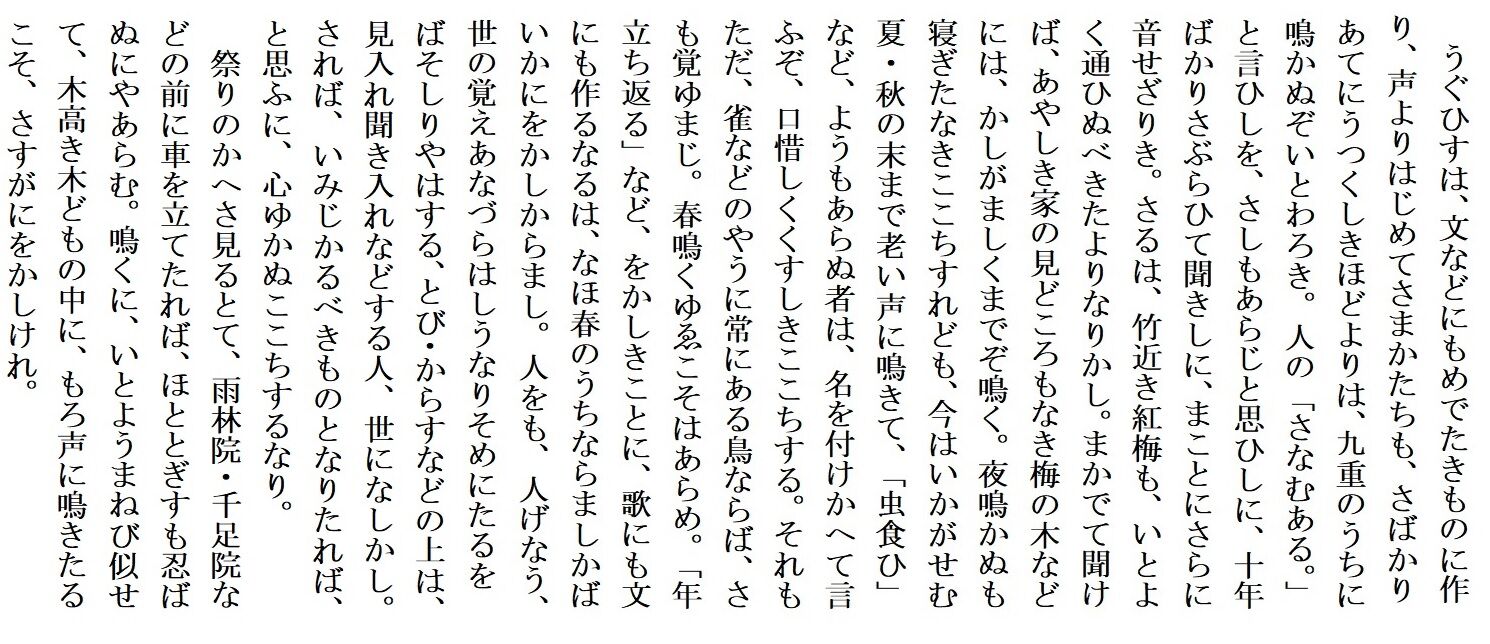 うぐひすは、文などにもめでたきものに作
り、声よりはじめてさまかたちも、さばかり
あてにうつくしきほどよりは、九重のうちに
鳴かぬぞいとわろき。人の「さなむある。」
と言ひしを、さしもあらじと思ひしに、十年
ばかりさぶらひて聞きしに、まことにさらに
音せざりき。さるは、竹近き紅梅も、いとよ
く通ひぬべきたよりなりかし。まかでて聞け
ば、あやしき家の見どころもなき梅の木など
には、かしがましくまでぞ鳴く。夜鳴かぬも
寝ぎたなきここちすれども、今はいかがせむ
夏・秋の末まで老い声に鳴きて、「虫食ひ」
など、ようもあらぬ者は、名を付けかへて言
ふぞ、口惜しくくすしきここちする。それも
ただ、雀などのやうに常にある鳥ならば、さ
も覚ゆまじ。春鳴くゆゑこそはあらめ。「年
立ち返る」など、をかしきことに、歌にも文
にも作るなるは、なほ春のうちならましかば
いかにをかしからまし。人をも、人げなう、
世の覚えあなづらはしうなりそめにたるを
ばそしりやはする、とび・からすなどの上は、
見入れ聞き入れなどする人、世になしかし。
されば、いみじかるべきものとなりたれば、
と思ふに、心ゆかぬここちするなり。
祭りのかへさ見るとて、雨林院・千足院な
どの前に車を立てたれば、ほととぎすも忍ば
ぬにやあらむ。鳴くに、いとようまねび似せ
て、木高き木どもの中に、もろ声に鳴きたる
こそ、さすがにをかしけれ。